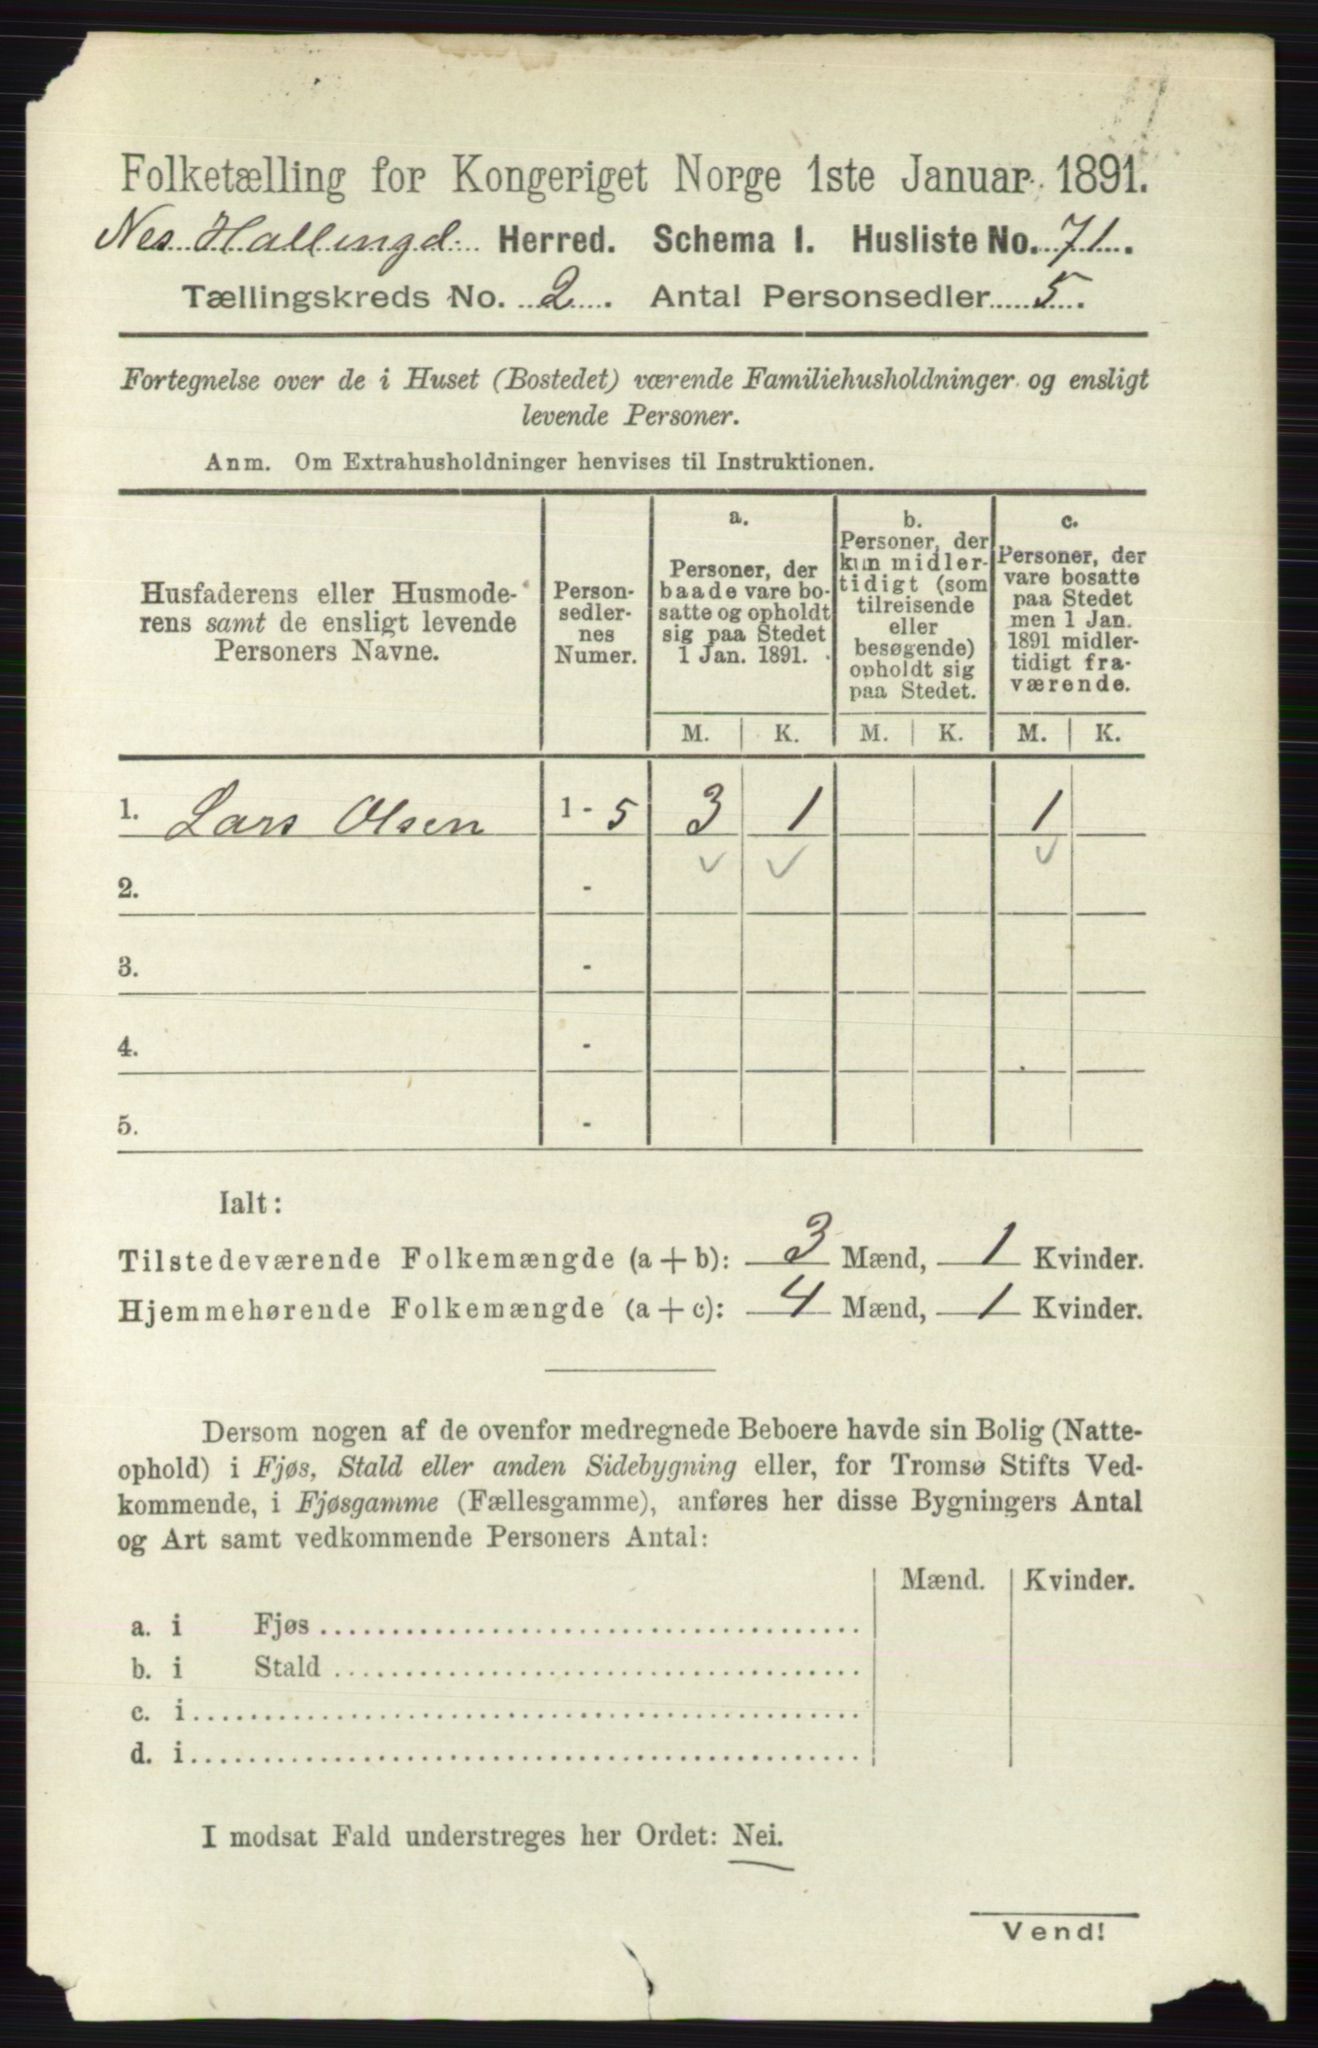 Folketælling for Kongeriget Norge 1ste Januar 1891.
Nes Hallingd. Herred. Schema I. Husliste No. 71.
Tællingskreds No. 2. Antal Personsedler 5.
Fortegnelse over de i Huset (Bostedet) værende Familiehusholdninger og ensligt
levende Personer.
Anm. Om Extrahusholdninger henvises til Instruktionen.
Husfaderens eller Husmode-
rens samt de ensligt levende
Personers Navne.
Person-
sedler-
nes
Numer.
a.
Personer, der
baade vare bo-
satte og opholdt
sig paa Stedet
1 Jan. 1891.
b.
Personer, der
kun midler-
tidigt (som
tilreisende
eller
besøgende)
opholdt sig
paa Stedet.
c.
Personer, der
vare bosatte
paa Stedet
men 1 Jan.
1891 midler-
tidigt fra-
værende.
M. K. M. K. M. K.
1. Lars Olsen 1 - 5 3 1 1
2. -
3. -
4. -
5. -
Ialt:
Tilstedeværende Folkemængde (a + b): 3 Mænd, 1 Kvinder.
Hjemmehørende Folkemængde (a + c): 4 Mænd, 1 Kvinder.
Dersom nogen af de ovenfor medregnede Beboere havde sin Bolig (Natte-
ophold) i Fjøs, Stald eller anden Sidebygning eller, for Tromsø Stifts Ved-
kommende, i Fjøsgamme (Fællesgamme), anføres her disse Bygningers Antal
og Art samt vedkommende Personers Antal:
Mænd. Kvinder.
a. i Fjøs
b. i Stald
c. i
d. i
I modsat Fald understreges her Ordet: Nei.
Vend!